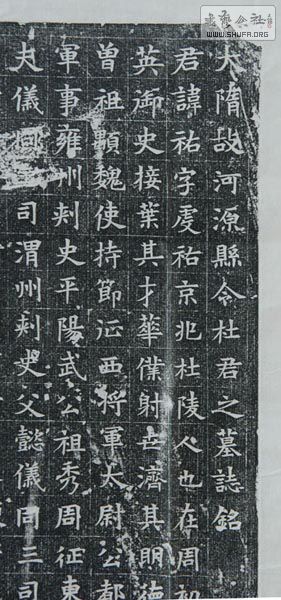 书艺公社
WWW.SHUFA.ORG
大隋故河源縣令杜君之墓誌銘
君諱祐字虔祐京兆杜陵人也在周初
英御史接葉其才華僕射世濟其明德
曾祖顒魏使持節征西將軍太尉公都
軍事雍州刺史平陽武公祖秀周征東
夫儀同司渭州刺史父懿儀同三司